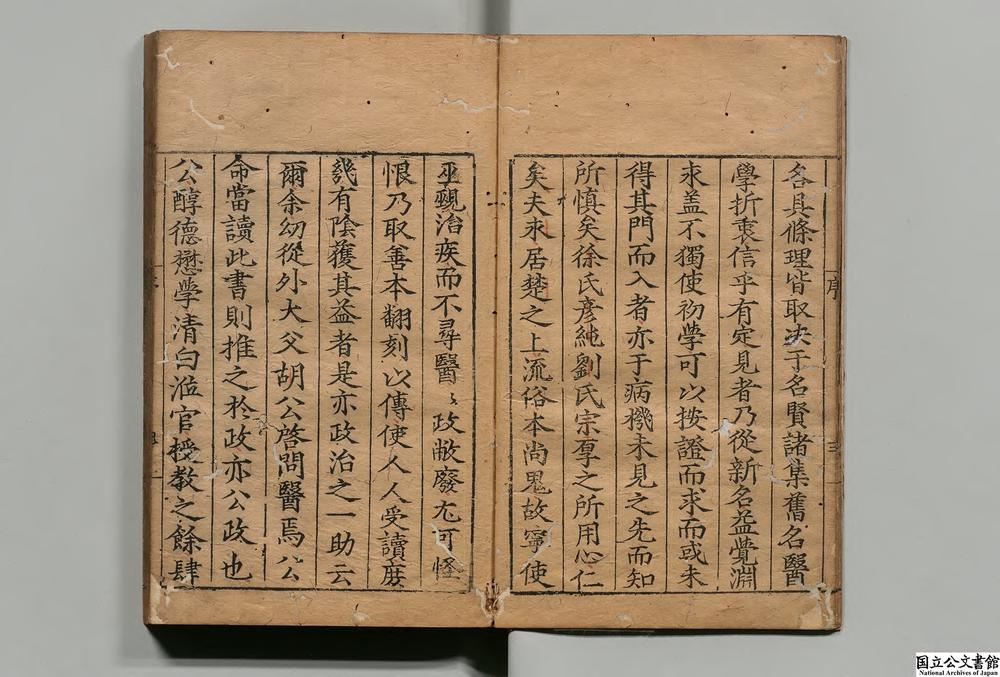 各具條理皆取决于名賢諸集舊名醫
學折衷信乎有定見者乃從新名益覺淵
求盖不獨使初學可以按證而求而或未
得其門而入者亦于病機未見之先而知
所慎矣徐氏彦純劉氏宗厚之所用心仁
矣夫永居楚之上流俗本尚鬼故寧使
巫覡治疾而不尋醫〻政敝廢尤可怪
恨乃取善本翻刻以傳使人人受讀庻
幾有陰獲其益者是亦政治之一助云
爾余幼從外大父胡公啓問醫焉公
命當讀此書則推之於政亦公政也
公醇德懋學清白涖官授教之餘肆
序
三
国立公文書館
National Archives of Japan